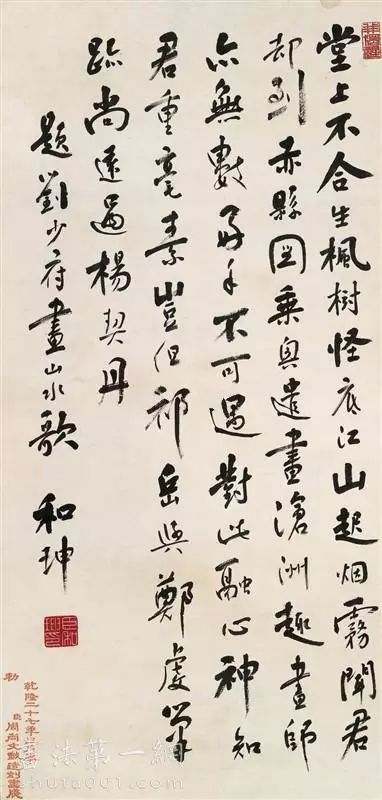 堂上不合生楓樹怪底江山起烟霧聞君
却到赤縣圖乘興遣畫滄洲趣畫師
亦無數好手不可遇對此融心神知
君重毫素豈但祁岳與鄭虔筆
跡尚遠過楊契丹
題劉少府畫山水歌 和珅
勅
乾隆三十七年
臣周尚文敬造
書法第一網
shufa001.com